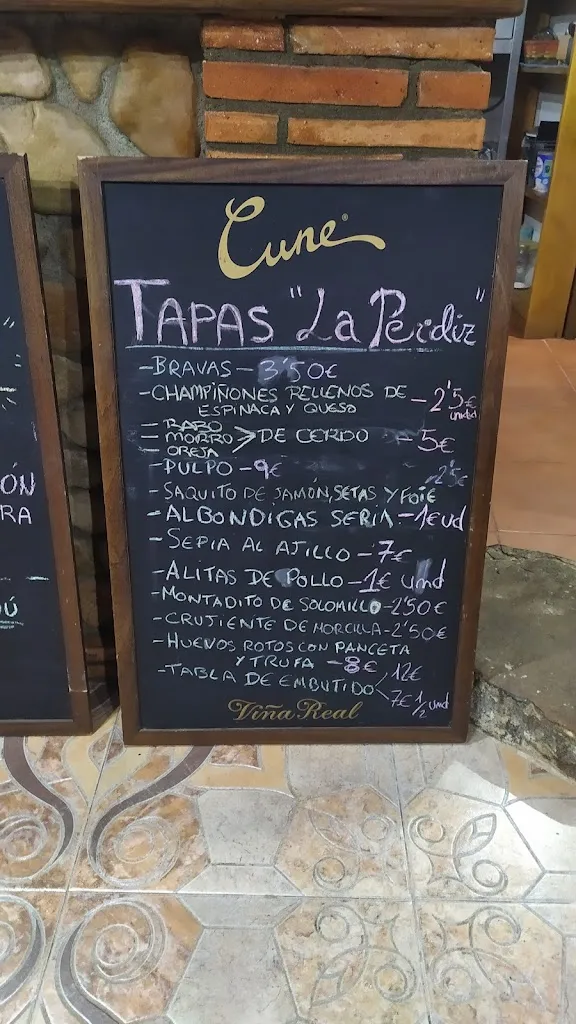 Cune®
TAPAS "La Perdiz"
- BRAVAS - 3'50€
- CHAMPIÑONES RELLENOS DE
ESPINACA Y QUESO - 2'5€
unidad
- RABO
- MORRO > DE CERDO - 5€
- OREJA
- PULPO - 9€
- SAQUITO DE JAMÓN, SETAS Y FOIE 2'5€
- ALBONDIGAS SERIA - 1€ ud
- SEPIA AL AJILLO - 7€
- ALITAS DE POLLO - 1€ und
- MONTADITO DE SOLOMILLO - 2'50€
- CRUJIENTE DE MORCILLA - 2'50€
- HUEVOS ROTOS CON PANCETA
Y TRUFA - 8€
- TABLA DE EMBUTIDO < 12€
7€ 1/2 und
Viña Real
ÓN
RA
Ú